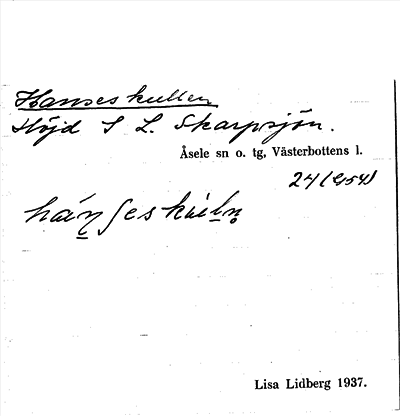 Hanseskullen
Höjd S L. Skarpsjön.
Åsele sn o. tg, Västerbottens l.
24
Lisa Lidberg 1937.